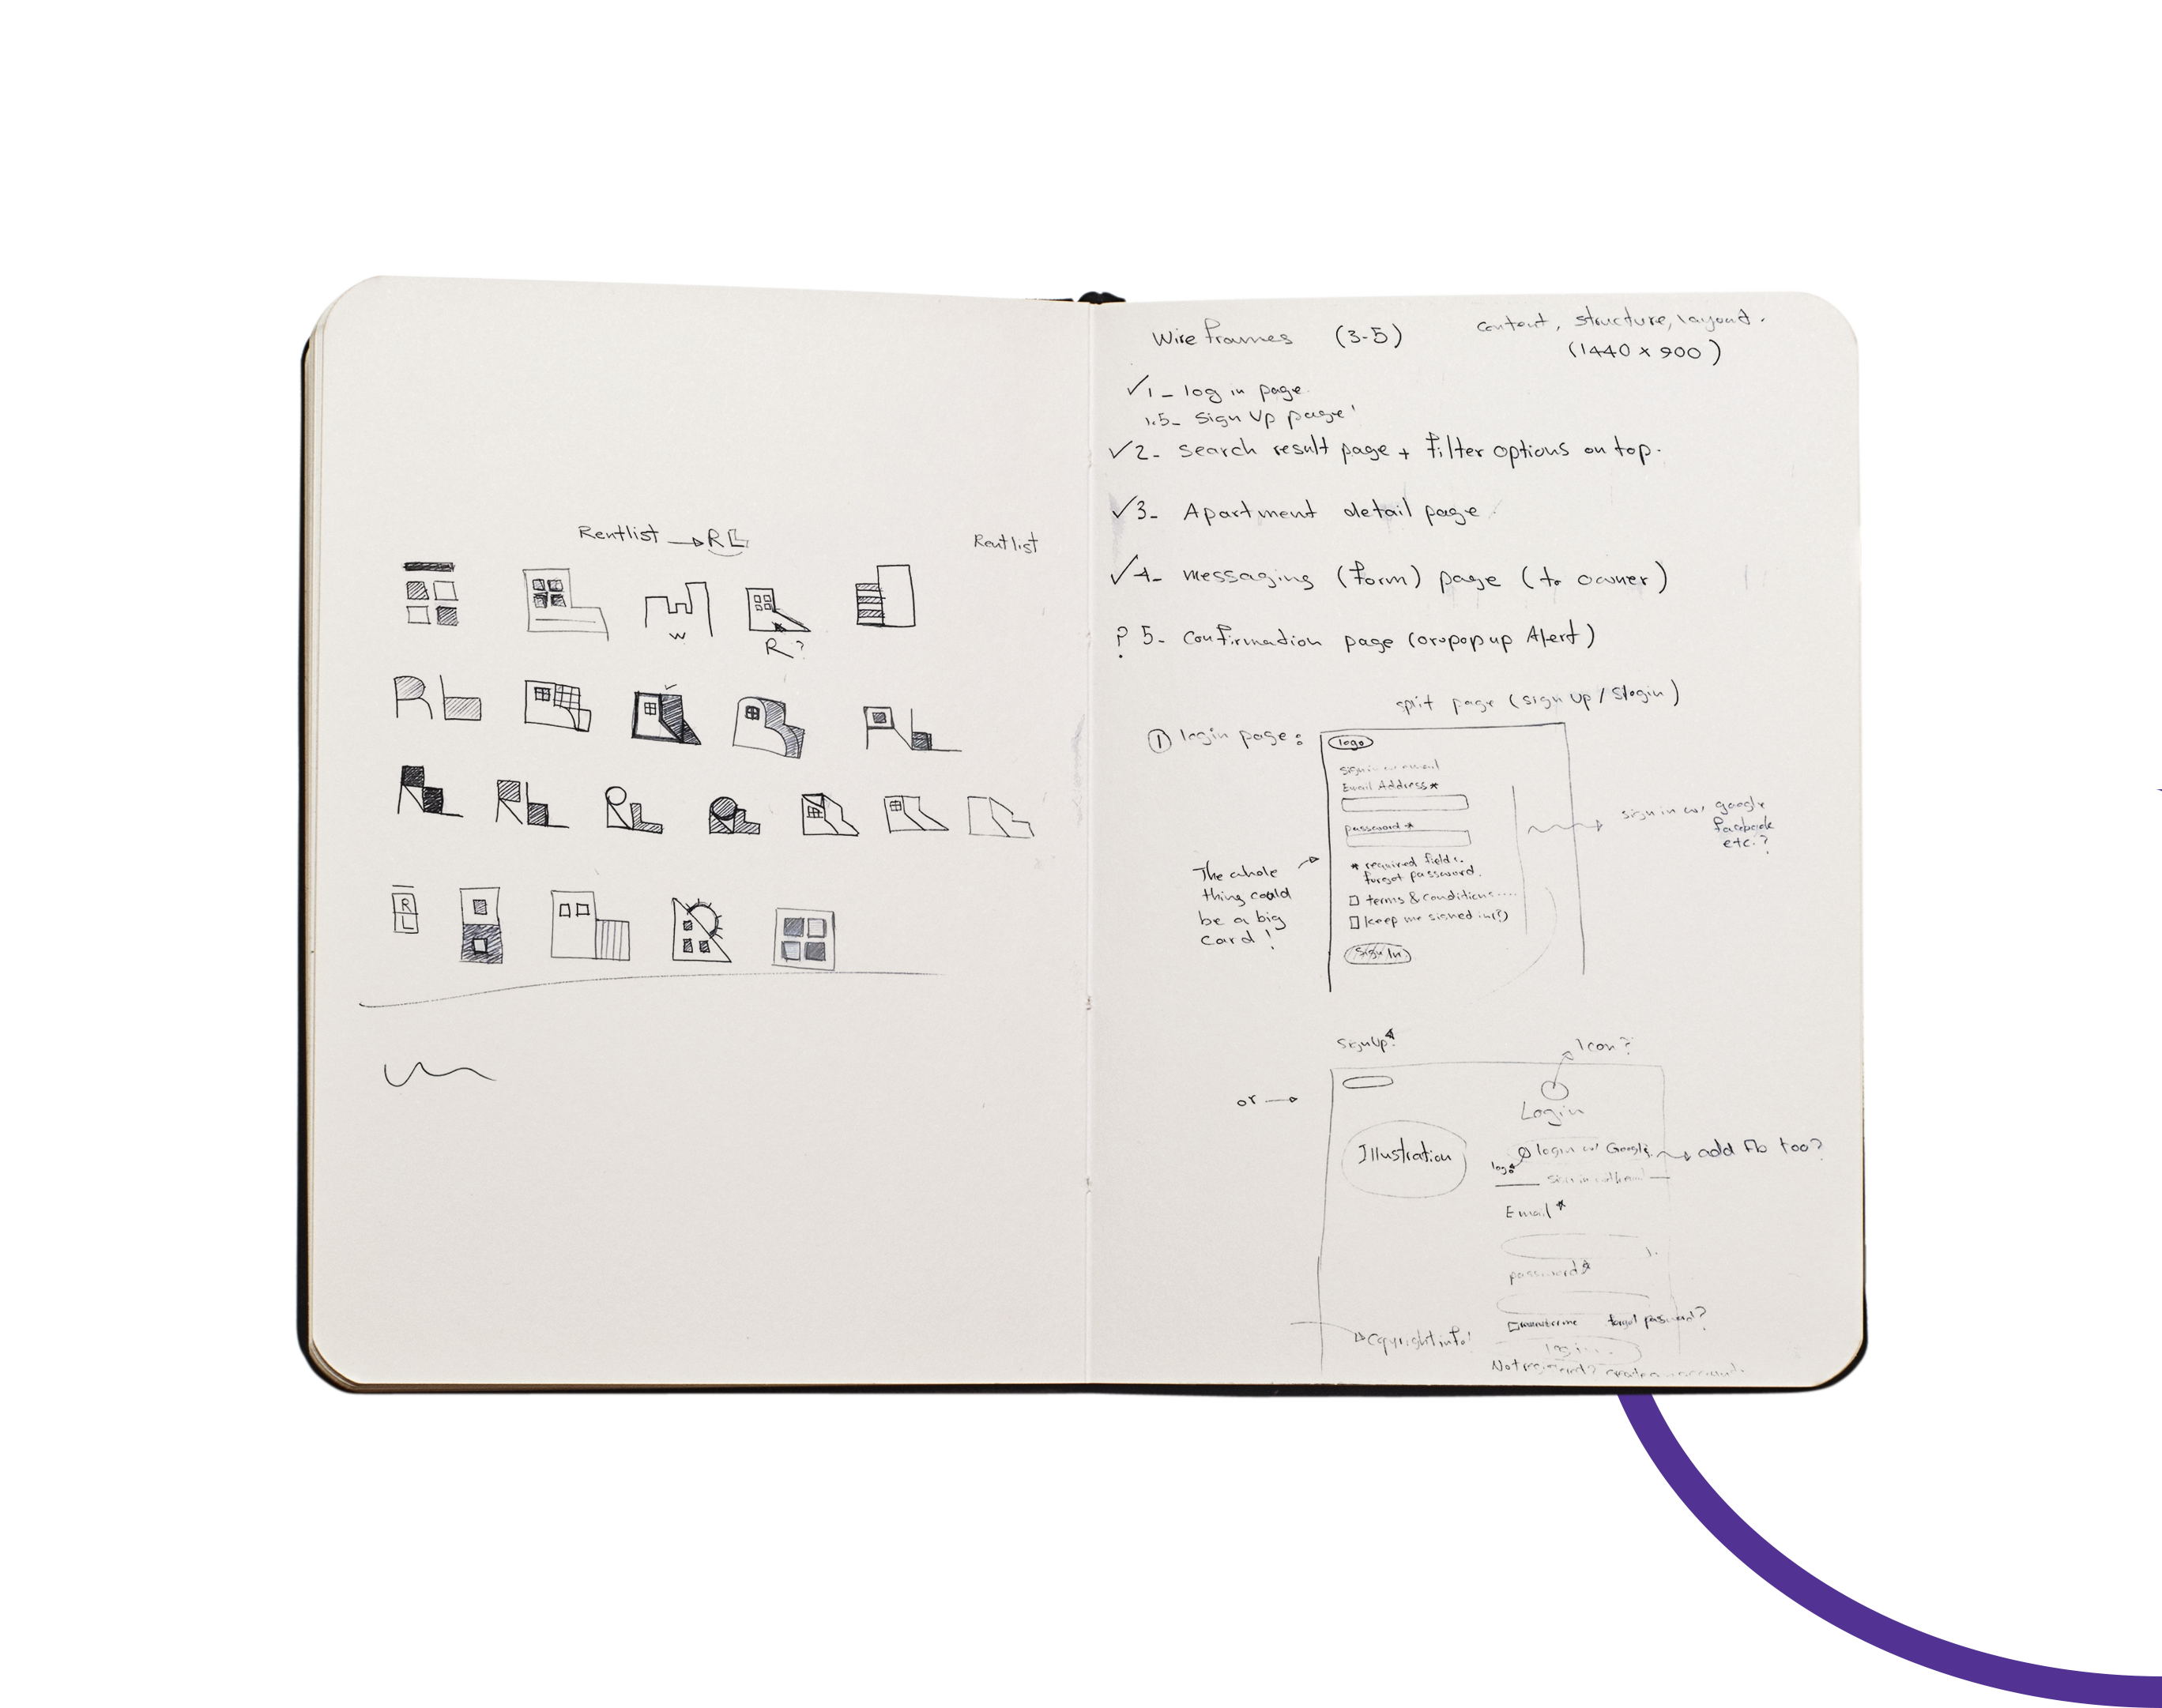 Rentlist → RL
Rentlist
w
R?
RL
RL
RL
RL
RL
R
L
Wireframes (3-5)
content, structure, layout.
(1440 x 900)
✓1_ log in page.
1.5_ Sign Up page!
✓2_ search result page + filter options on top.
✓3_ Apartment detail page
✓4_ messaging (form) page (to owner)
? 5_ Confirmation page (or popup Alert)
split page (sign up / login)
① login page:
logo
Email Address *
password *
* required fields.
forgot password.
terms & conditions....
keep me signed in(?)
Sign In
sign in w/ google
facebook
etc.?
The whole
thing could
be a big
card!
SignUp
Icon?
or →
Login
Illustration
login w/ Google
→ add Fb too?
logo
Email *
password *
forgot password?
Copyright info!
login
Not registered? create account